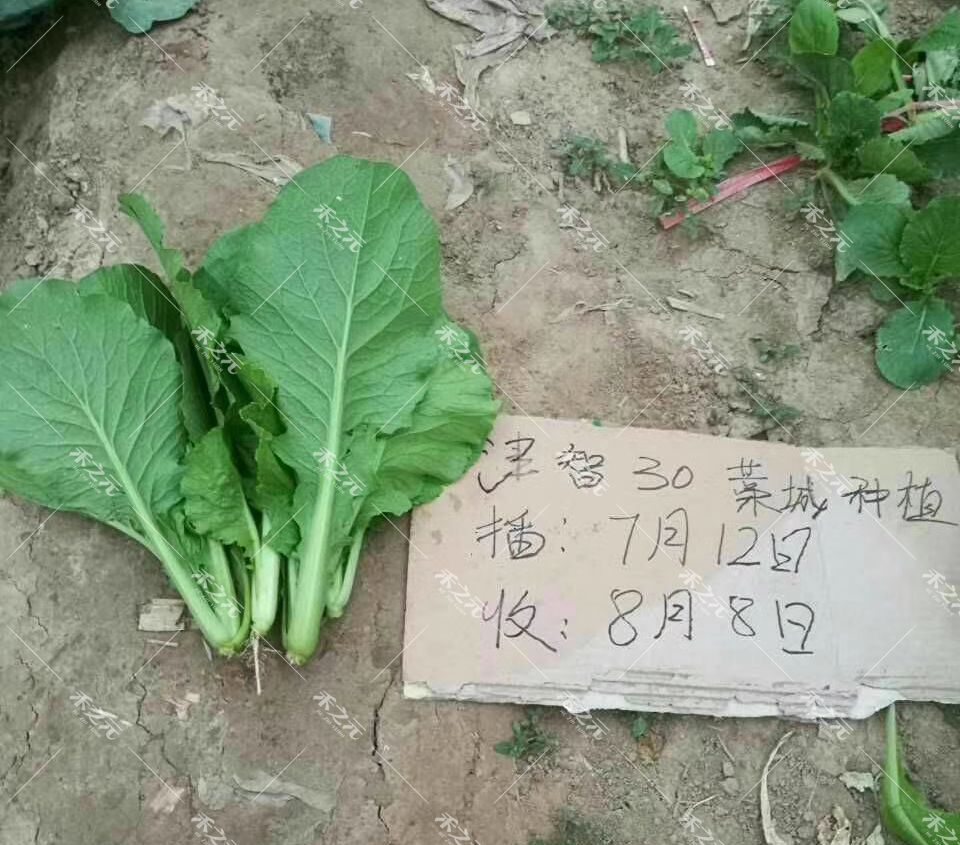 津智30 菜城种植
播：7月12日
收：8月8日
禾之元